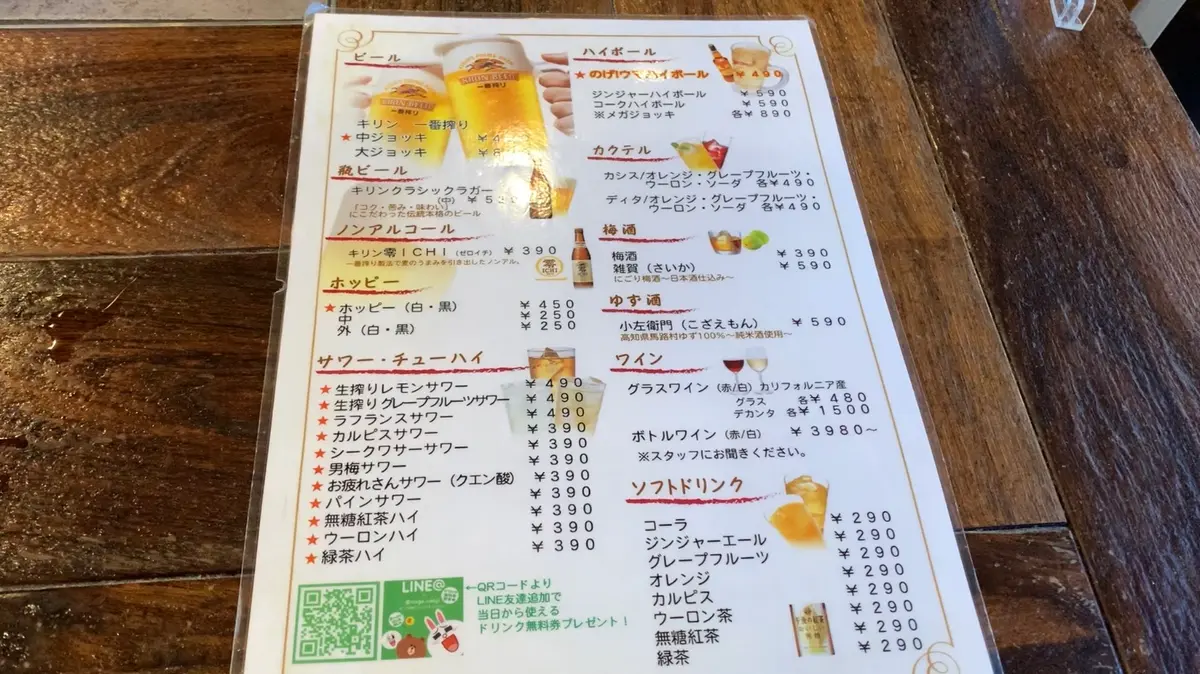 ビール
KIRIN BEER
一番搾り
KIRIN BEER
一番搾り
キリン 一番搾り
★中ジョッキ ¥4
大ジョッキ ¥8
瓶ビール
キリンクラシックラガー
(中) ¥5
「コク・苦み・味わい」
にこだわった伝統本格のビール
ノンアルコール
キリン零ICHI(ゼロイチ) ¥390
一番搾り製法で麦のうまみを引き出したノンアル。
零
ICHI
ホッピー
★ホッピー(白・黒) ¥450
中 ¥250
外(白・黒) ¥250
サワー・チューハイ
★生搾りレモンサワー ¥490
★生搾りグレープフルーツサワー ¥490
★ラフランスサワー ¥490
★カルピスサワー ¥390
★シークワサーサワー ¥390
★男梅サワー ¥390
★お疲れさんサワー(クエン酸) ¥390
★パインサワー ¥390
★無糖紅茶ハイ ¥390
★ウーロンハイ ¥390
★緑茶ハイ ¥390
LINE@
←QRコードより
LINE友達追加で
当日から使える
ドリンク無料券プレゼント!
ハイボール
★のげ!ウマハイボール ¥490
ジンジャーハイボール ¥590
コークハイボール ¥590
※メガジョッキ 各¥890
カクテル
カシス/オレンジ・グレープフルーツ・
ウーロン・ソーダ 各¥490
ディタ/オレンジ・グレープフルーツ・
ウーロン・ソーダ 各¥490
梅酒
梅酒 ¥390
雑賀(さいか) ¥590
にごり梅酒~日本酒仕込み~
ゆず酒
小左衛門(こざえもん) ¥590
高知県馬路村ゆず100%~純米酒使用~
ワイン
グラスワイン(赤/白)カリフォルニア産
グラス 各¥480
デカンタ 各¥1500
ボトルワイン(赤/白) ¥3980~
※スタッフにお聞きください。
ソフトドリンク
コーラ ¥290
ジンジャーエール ¥290
グレープフルーツ ¥290
オレンジ ¥290
カルピス ¥290
ウーロン茶 ¥290
無糖紅茶 ¥290
緑茶 ¥290